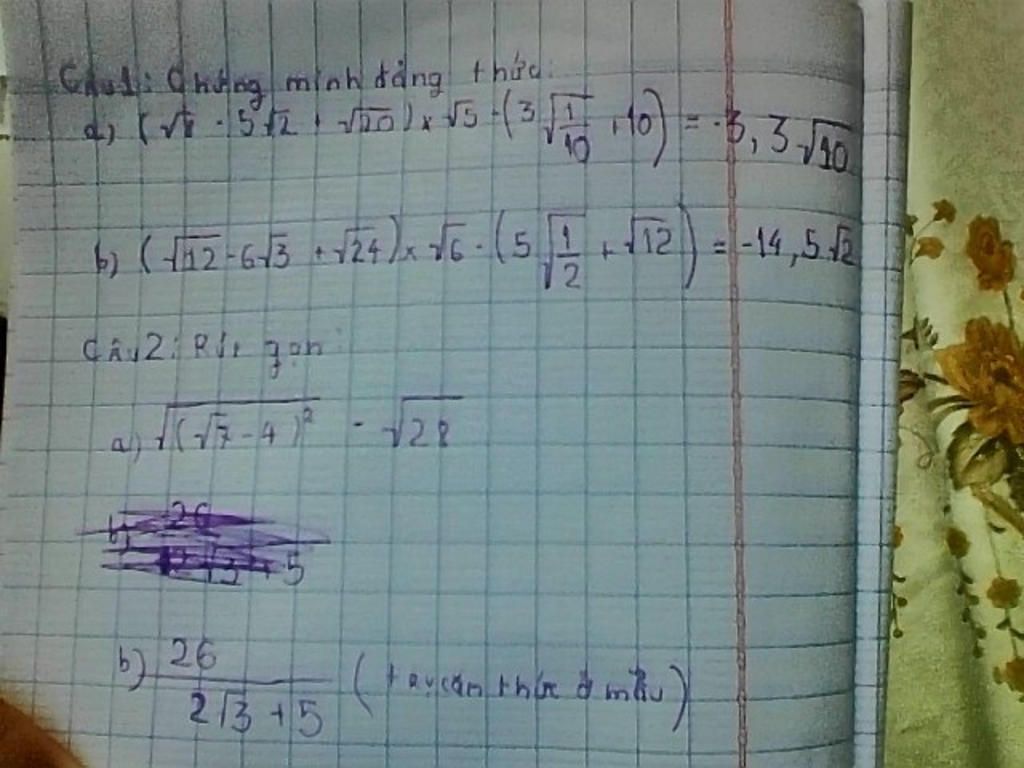 Câu1: Chứng minh đẳng thức:
a) (√8 - 5√2 + √20) x √5 - (3√(1/10) + 10) = -3,3√10
b) (√12 - 6√3 + √24) x √6 - (5√(1/2) + √12) = -14,5√2
Câu2: Rút gọn:
a) √((√7 - 4)²) - √28
b) 26/(2√3 + 5) (trục căn thức ở mẫu)